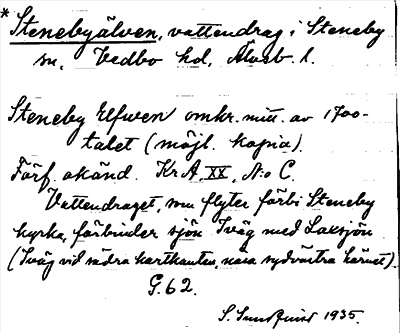 * Stenebyälven, vattendrag i Steneby
sn, Vedbo hd, Älvsb. l.
Steneby Elfwen omkr. mitt. av 1700-
talet (möjl. kopia).
Förf. okänd. KrA, XX, N:o C.
Vattendraget, som flyter förbi Steneby
kyrka, förbinder sjön Iväg med Laxsjön
(Iväg vid södra kartkanten, nära sydvästra hörnet).
G. 62.
S. Sundquist 1935.